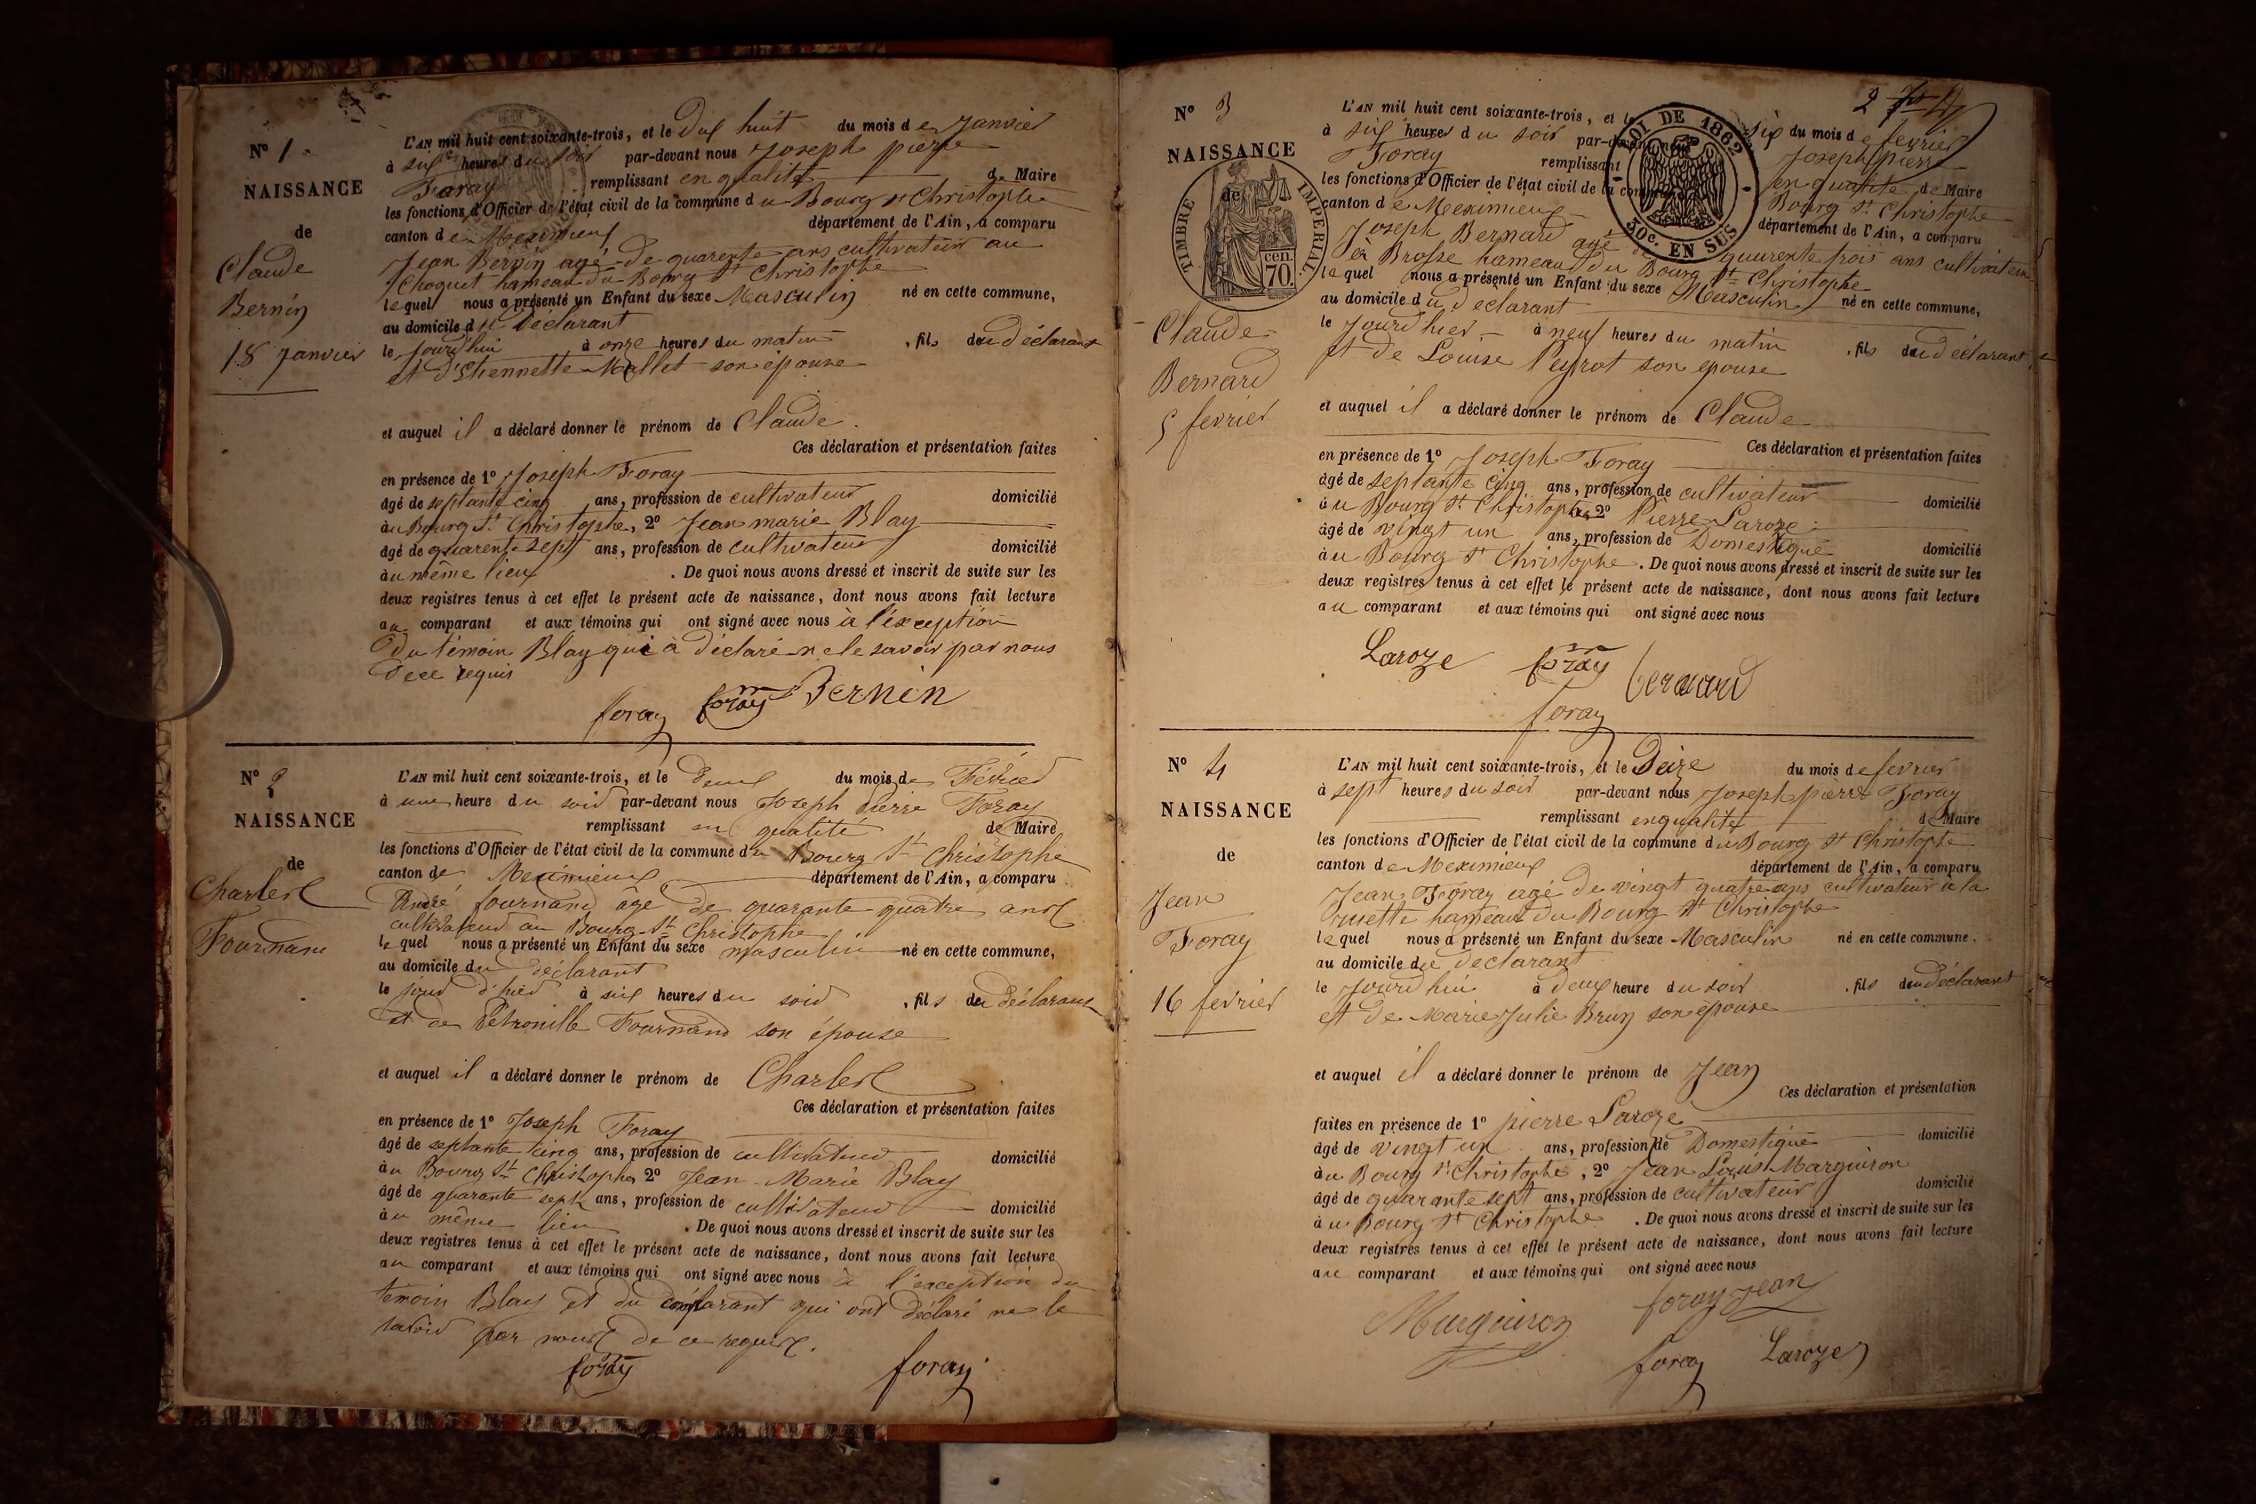 N° 1
NAISSANCE
de
Claude
Bernin
18 janvier
L'AN mil huit cent soixante-trois, et le Dix huit du mois de Janvier
à six heures du soir par-devant nous Joseph pierre
Foray remplissant en qualité de Maire
les fonctions d'Officier de l'état civil de la commune du Bourg St Christophe
canton de Meximieux département de l'Ain, a comparu
Jean Bernin agé de quarente ans cultivateur au
Choquet hameau du Bourg St Christophe
lequel nous a présenté un Enfant du sexe Masculin né en cette commune,
au domicile du Déclarant
le Jourd'hui à onze heures du matin, fils du déclarant
et d'Etiennette Mallet son épouse
et auquel il a déclaré donner le prénom de Claude.
Ces déclaration et présentation faites
en présence de 1° Joseph Foray
âgé de septante cinq ans, profession de cultivateur domicilié
au Bourg St Christophe, 2° Jean marie Blay
âgé de quarente sept ans, profession de cultivateur domicilié
au même lieu. De quoi nous avons dressé et inscrit de suite sur les
deux registres tenus à cet effet le présent acte de naissance, dont nous avons fait lecture
au comparant et aux témoins qui ont signé avec nous à l'exception
du témoin Blay qui à déclaré ne le savoir par nous
de ce requis
foray foray Bernin
N° 2
NAISSANCE
de
Charles
Fournand
L'AN mil huit cent soixante-trois, et le deux du mois de Février
à une heure du soir par-devant nous Joseph Pierre Foray
remplissant en qualité de Maire
les fonctions d'Officier de l'état civil de la commune du Bourg St Christophe
canton de Meximieux département de l'Ain, a comparu
André fournand âgé de quarante quatre ans
cultivateur au Bourg St Christophe
lequel nous a présenté un Enfant du sexe masculin né en cette commune,
au domicile du déclarant
le jour d'hier à six heures du soir, fils du déclarant
et de Pétronille Fournand son épouse
et auquel il a déclaré donner le prénom de Charles
Ces déclaration et présentation faites
en présence de 1° Joseph Foray
âgé de septante cinq ans, profession de cultivateur domicilié
au Bourg St Christophe, 2° Jean-Marie Blay
âgé de quarante sept ans, profession de cultivateur domicilié
au même lieu. De quoi nous avons dressé et inscrit de suite sur les
deux registres tenus à cet effet le présent acte de naissance, dont nous avons fait lecture
au comparant et aux témoins qui ont signé avec nous à l'exception du
témoin Blay et du comparant qui ont déclaré ne le
savoir par nous de ce requis.
foray foray
2
N° 3
NAISSANCE
de
TIMBRE IMPERIAL
70 cen.
LOI DE 1862
30c. EN SUS
Claude
Bernard
5 fevrier
L'AN mil huit cent soixante-trois, et le six du mois de fevrier
à six heures du soir par-devant nous Joseph pierre
Foray remplissant en qualité de Maire
les fonctions d'Officier de l'état civil de la commune Bourg St Christophe
canton de Meximieux département de l'Ain, a comparu
Joseph Bernard agé de quarente trois ans cultivateur
à Brosse hameau du Bourg St Christophe
lequel nous a présenté un Enfant du sexe Masculin né en cette commune,
au domicile du déclarant
le Jourd'hier à neuf heures du matin, fils du déclarant
et de Louise Peyrot son epouse
et auquel il a déclaré donner le prénom de Claude
Ces déclaration et présentation faites
en présence de 1° Joseph Foray
âgé de septante cinq ans, profession de cultivateur domicilié
au Bourg St Christophe 2° Pierre Laroze
âgé de vingt un ans, profession de Domestique domicilié
au Bourg St Christophe. De quoi nous avons dressé et inscrit de suite sur les
deux registres tenus à cet effet le présent acte de naissance, dont nous avons fait lecture
au comparant et aux témoins qui ont signé avec nous
Laroze foray bernard
foray
N° 4
NAISSANCE
de
Jean
Foray
16 fevrier
L'AN mil huit cent soixante-trois, et le Seize du mois de fevrier
à sept heures du soir par-devant nous Joseph pierre Foray
remplissant en qualité de Maire
les fonctions d'Officier de l'état civil de la commune du Bourg St Christophe
canton de Meximieux département de l'Ain, a comparu
Jean Foray agé de vingt quatre ans cultivateur à la
rusette hameau du Bourg St Christophe
lequel nous a présenté un Enfant du sexe Masculin né en cette commune.
au domicile du déclarant
le Jourd'hui à deux heure du soir, fils du déclarant
et de Marie Julie Brun son épouse
et auquel il a déclaré donner le prénom de Jean
Ces déclaration et présentation
faites en présence de 1° pierre Laroze
âgé de vingt un ans, profession de Domestique domicilié
au Bourg St Christophe, 2° Jean Louis Marguiron
âgé de quarante sept ans, profession de cultivateur domicilié
au Bourg St Christophe. De quoi nous avons dressé et inscrit de suite sur les
deux registres tenus à cet effet le présent acte de naissance, dont nous avons fait lecture
au comparant et aux témoins qui ont signé avec nous
Marguiron foray jean
foray Laroze